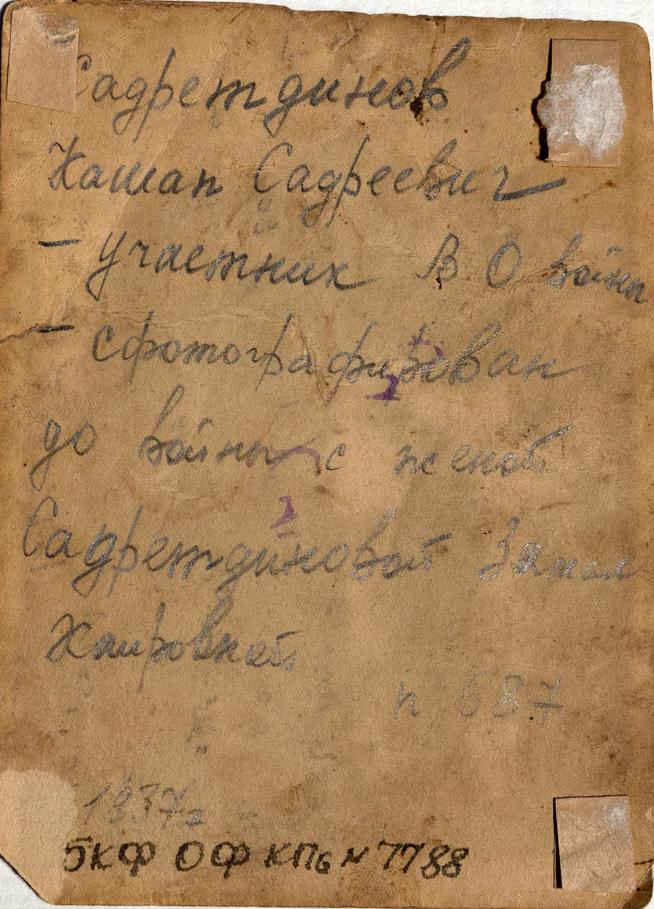 Садретдинов
Кашап Садреевич
- участник В О войны
- сфотографирован
до войны с женой
Садретдиновой Замал
Хаировной
п 687
1937г
БКФ ОФ КП6 N 7788